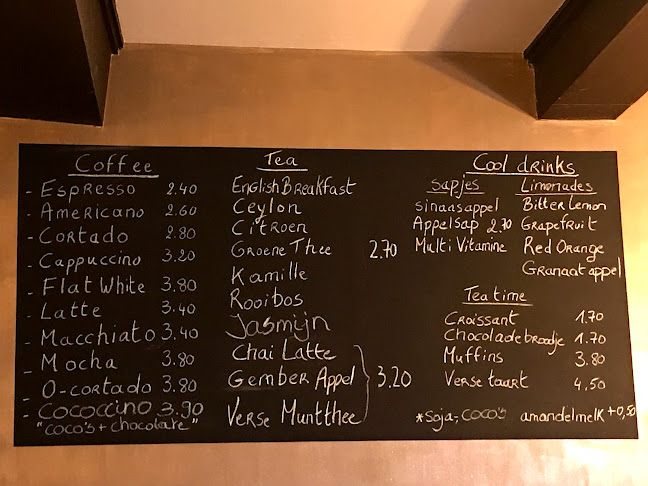 Coffee
- Espresso 2.40
- Americano 2.60
- Cortado 2.80
- Cappuccino 3.20
- Flat White 3.80
- Latte 3.40
- Macchiato 3.40
- Mocha 3.80
- O-cortado 3.80
- Cococcino 3.90
"coco's + chocolate"
Tea
English Breakfast
Ceylon
Citroen
Groene Thee 2.70
Kamille
Rooibos
Jasmijn
Chai Latte
Gember Appel 3.20
Verse Muntthee
Cool drinks
Sapjes
Sinaasappel
Appelsap 2.70
Multi Vitamine
Limonades
Bitter Lemon
Grapefruit
Red Orange
Granaatappel
Tea time
Croissant 1.70
Chocoladebroodje 1.70
Muffins 3.80
Verse taart 4.50
*Soja-, coco's amandelmelk +0,50